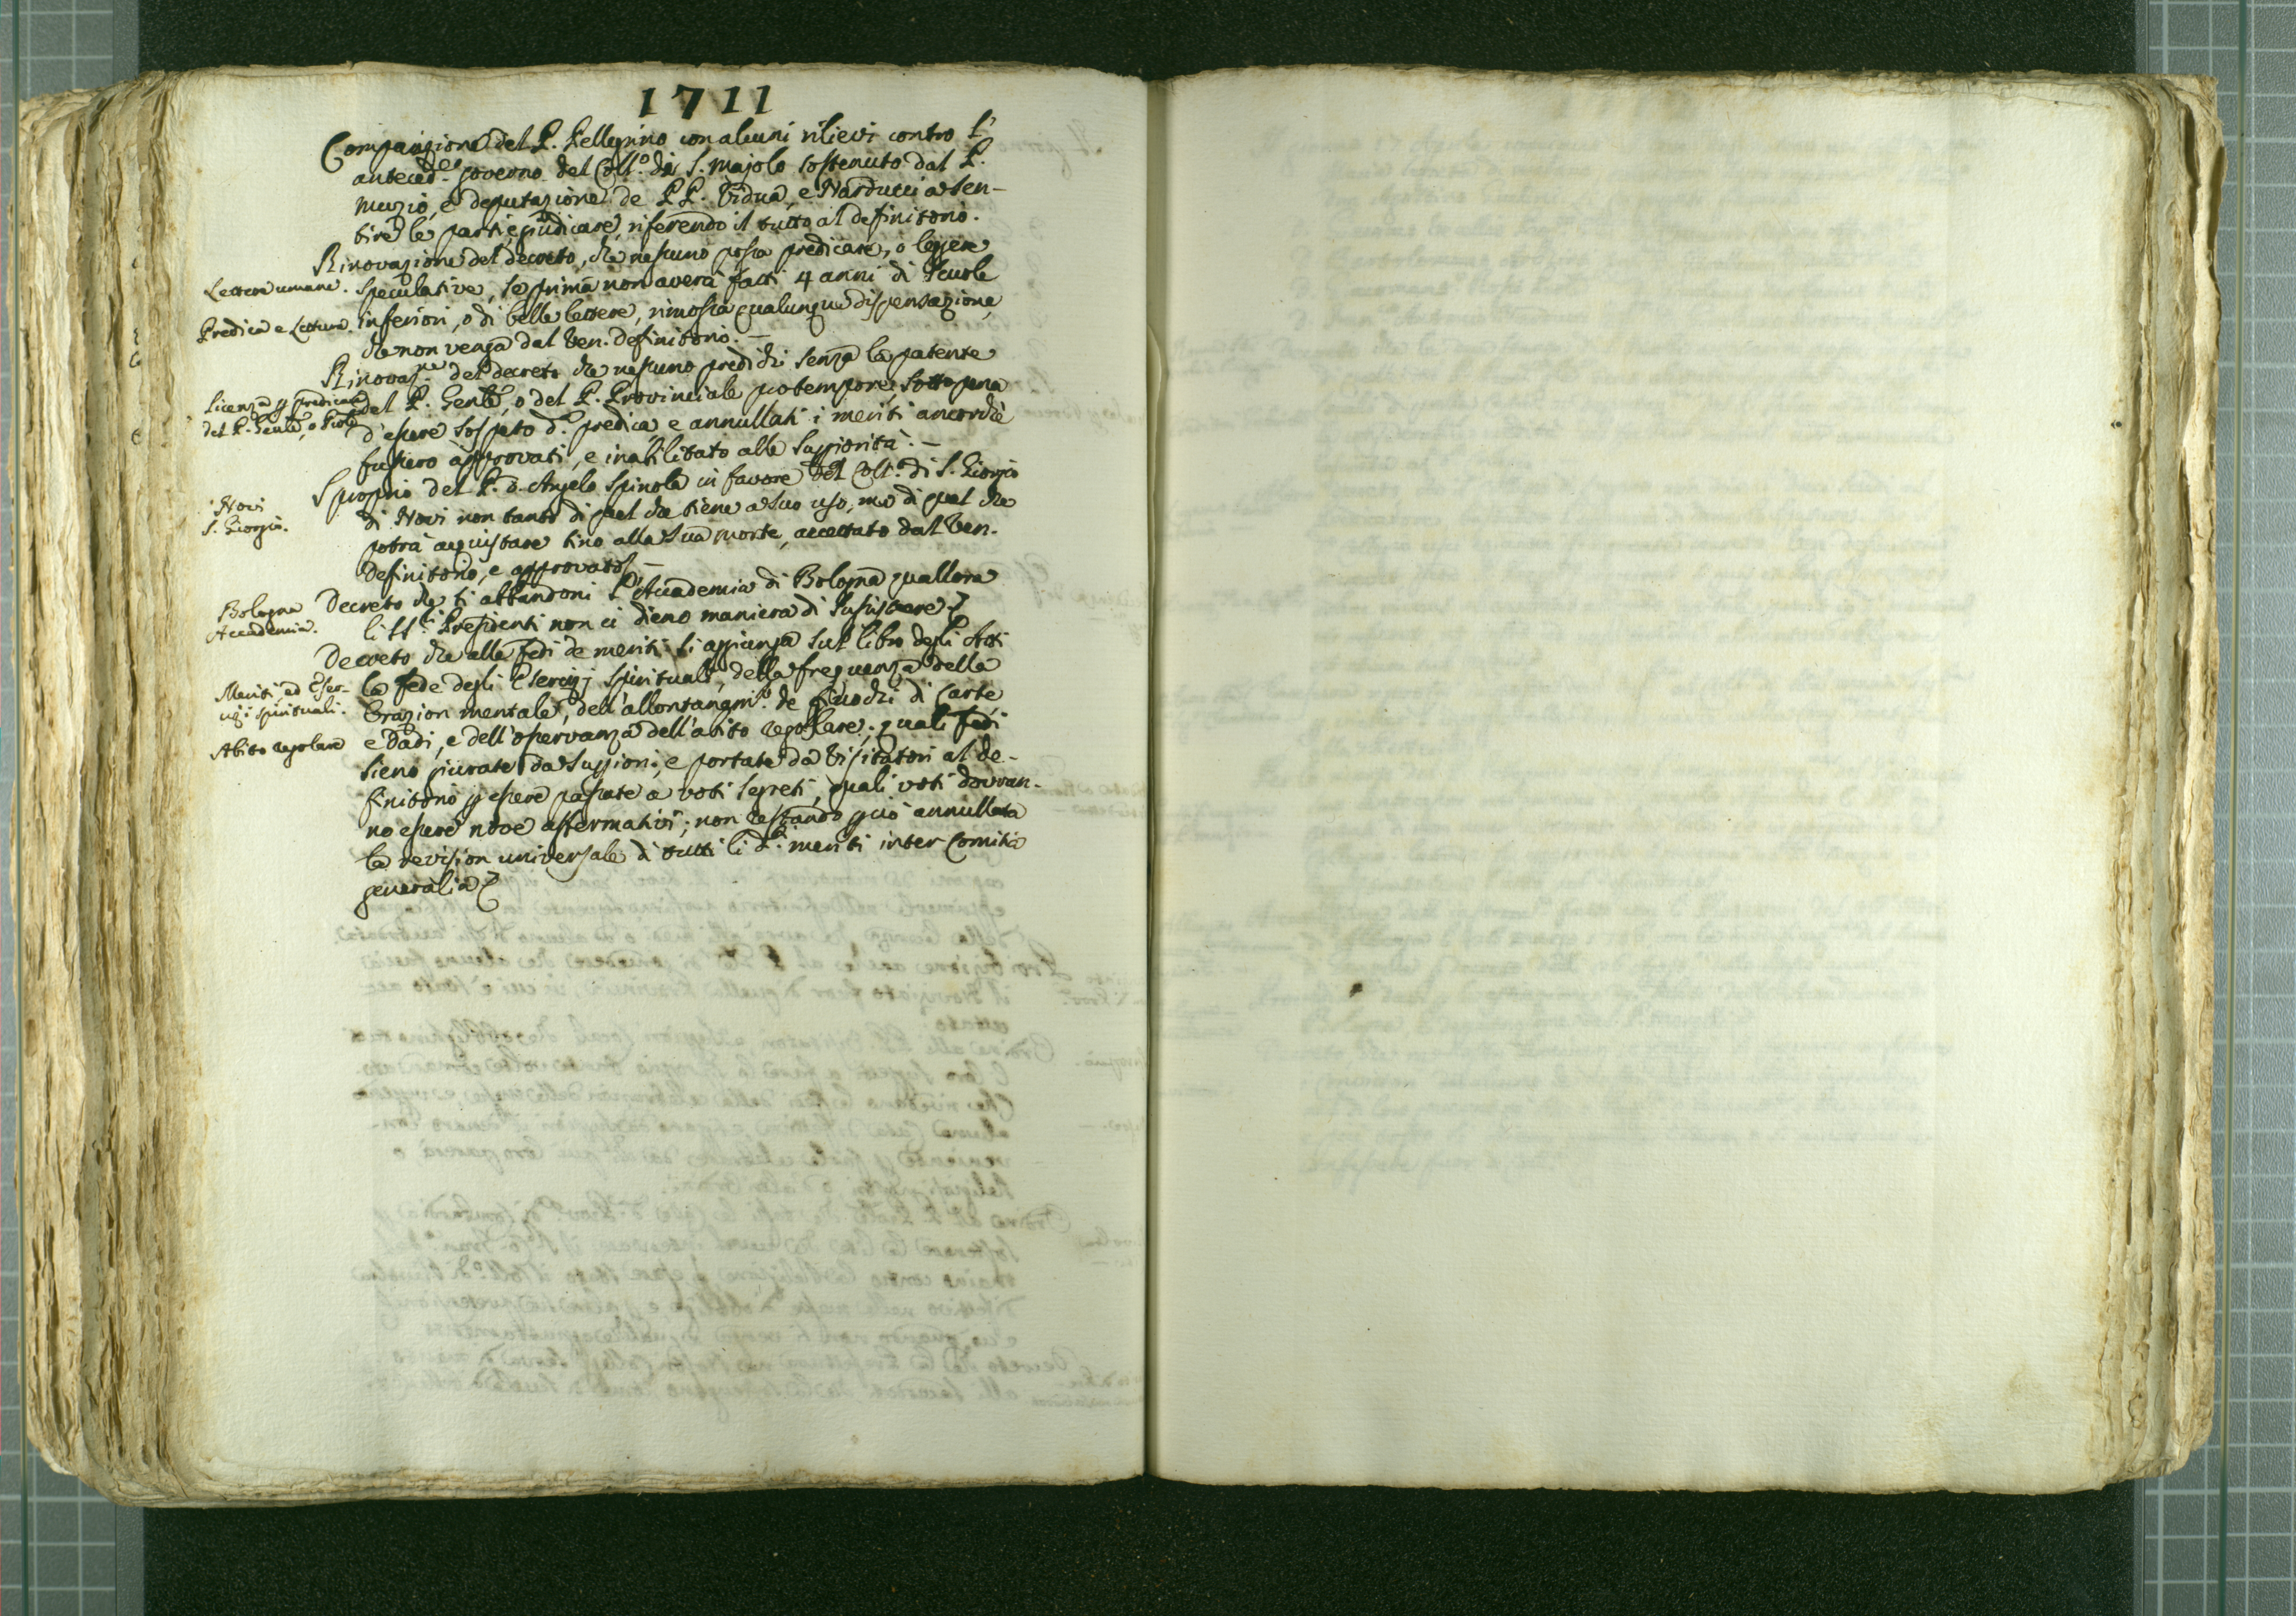 1711
Comparizione del P. Pellegrino con alcuni rilievi contro l'
anteced.e governo del Coll.o di S. Majolo sostenuto dal P.
Muzio, e deputazione de PP. Vidua, e Narducci a sen-
tire le parti, e giudicare, riferendo il tutto al definitorio.
Rinovazione del decreto, che nessuno possa predicare, o leggere
Lettere umane. speculative, se prima non averà fatti 4 anni di scuole
Predica e Lettura. inferiori, o di belle lettere, rimossa qualunque dispensazione,
che non venga dal Ven. definitorio. —
Rinovaz.ne del decreto che nessuno predichi senza la patente
Licenza p predicare del P. Genle, o del P. Provinciale pro tempore, sotto pena
del P. Genle, o Prole d'essere sospeso d. predica, e annullati i meriti ancorchè
fussero approvati, e inabilitato alle Superiorità. —
Sproprio del P. D. Angelo Spinola in favore del Coll.o di S. Giorgio
Novi
S. Giorgio.
di Novi non tanto di quel che tiene a suo uso, ma di quel che
potrà acquistare sino alla sua morte, accettato dal Ven.
Definitorio, e approvato. —
Bologna
Accademia.
Decreto che si abbandoni l'Accademia di Bologna quallora
li SS.ri Presidenti non ci dieno maniera di sussistere.
Decreto che alle fedi de meriti si aggiunga sul libro degli Atti
Meriti ed Eser-
cizi spirituali.
la fede degli Esercizj spirituali, della frequenza della
Orazion mentale, dell'allontanam.to de giuochi di Carte,
Abito regolare e Dadi, e dell'osservanza dell'abito regolare; quali fedi
sieno giurate da Superiori, e portate da Visitatori al de-
finitorio p essere passate a voti segreti, quali voti dovran-
no essere nove affermativi; non restando p ciò annullata
la revision universale di tutti li d.i meriti inter Comitia
generalia